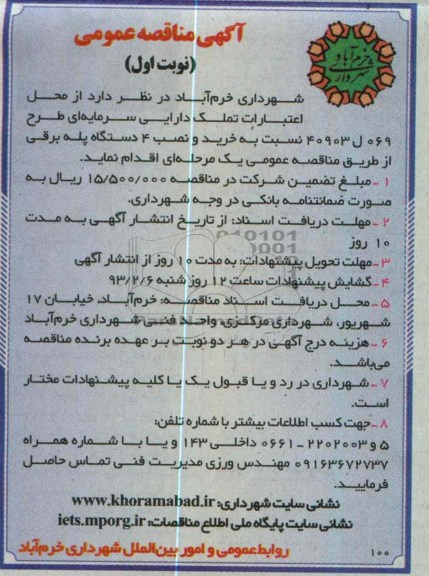 آگهی مناقصه عمومی
(نوبت اول)
خرم آباد
شهرداری
شهرداری خرم‌آباد در نظر دارد از محل
اعتبارات تملک دارایی سرمایه‌ای طرح
۰۶۹ ل ۴۰۹۰۳ نسبت به خرید و نصب ۴ دستگاه پله برقی
از طریق مناقصه عمومی یک مرحله‌ای اقدام نماید.
۱ - مبلغ تضمین شرکت در مناقصه ۱۵/۵۰۰/۰۰۰ ریال به
صورت ضمانتنامه بانکی در وجه شهرداری.
۲ - مهلت دریافت اسناد: از تاریخ انتشار آگهی به مدت
۱۰ روز
۳ - مهلت تحویل پیشنهادات: به مدت ۱۰ روز از انتشار آگهی
۴ - گشایش پیشنهادات ساعت ۱۲ روز شنبه ۹۳/۲/۶
۵ - محل دریافت اسناد مناقصه: خرم‌آباد، خیابان ۱۷
شهریور، شهرداری مرکزی، واحد فنی شهرداری خرم‌آباد
۶ - هزینه درج آگهی در هر دو نوبت بر عهده برنده مناقصه
می‌باشد.
۷ - شهرداری در رد و یا قبول یک یا کلیه پیشنهادات مختار
است.
۸ - جهت کسب اطلاعات بیشتر با شماره تلفن:
۵ و ۲۲۰۲۰۰۳ - ۰۶۶۱ داخلی ۱۴۳ و یا با شماره همراه
۰۹۱۶۳۶۷۲۷۳۷ مهندس ورزی مدیریت فنی تماس حاصل
فرمایید.
نشانی سایت شهرداری: www.khoramabad.ir
نشانی سایت پایگاه ملی اطلاع مناقصات: iets.mporg.ir
روابط عمومی و امور بین‌الملل شهرداری خرم‌آباد
۱۰۰